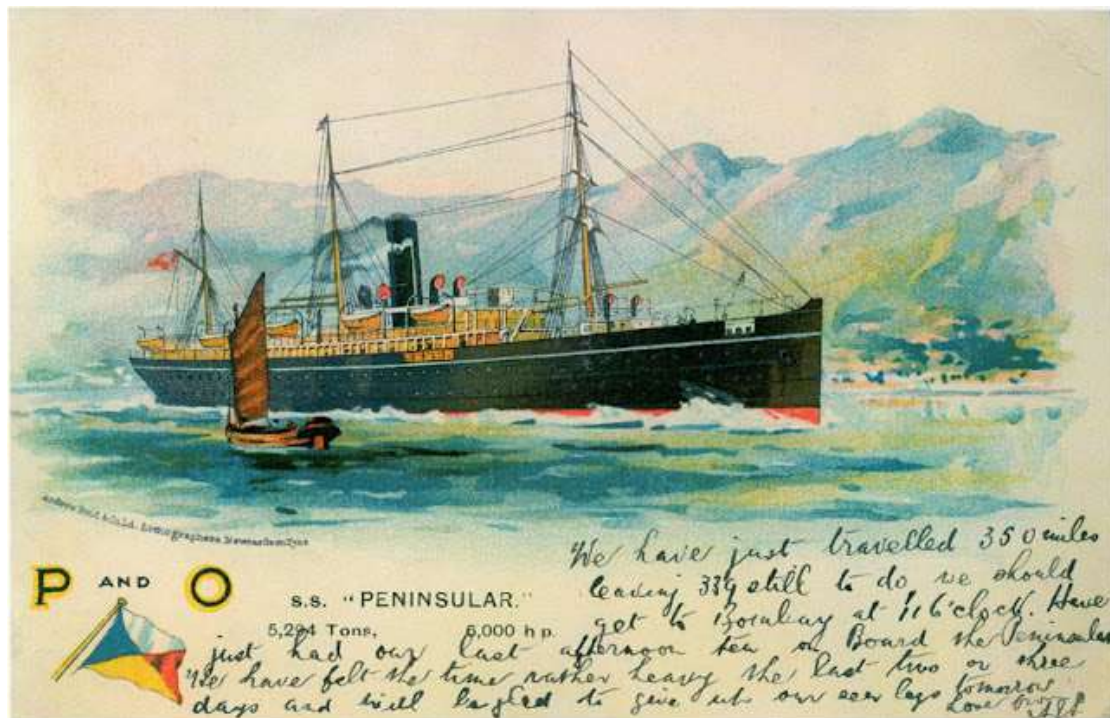 Andrew Reid & Co. Ld. Lithographers Newcastle on Tyne
P AND O
S.S. "PENINSULAR."
5,294 Tons, 6,000 h p.
We have just travelled 350 miles
leaving 339 still to do we should
get to Bombay at 11 o'clock. Have
just had our last afternoon tea on Board the Peninsular
We have felt the time rather heavy the last two or three
days and will be glad to give up our legs tomorrow
Love from